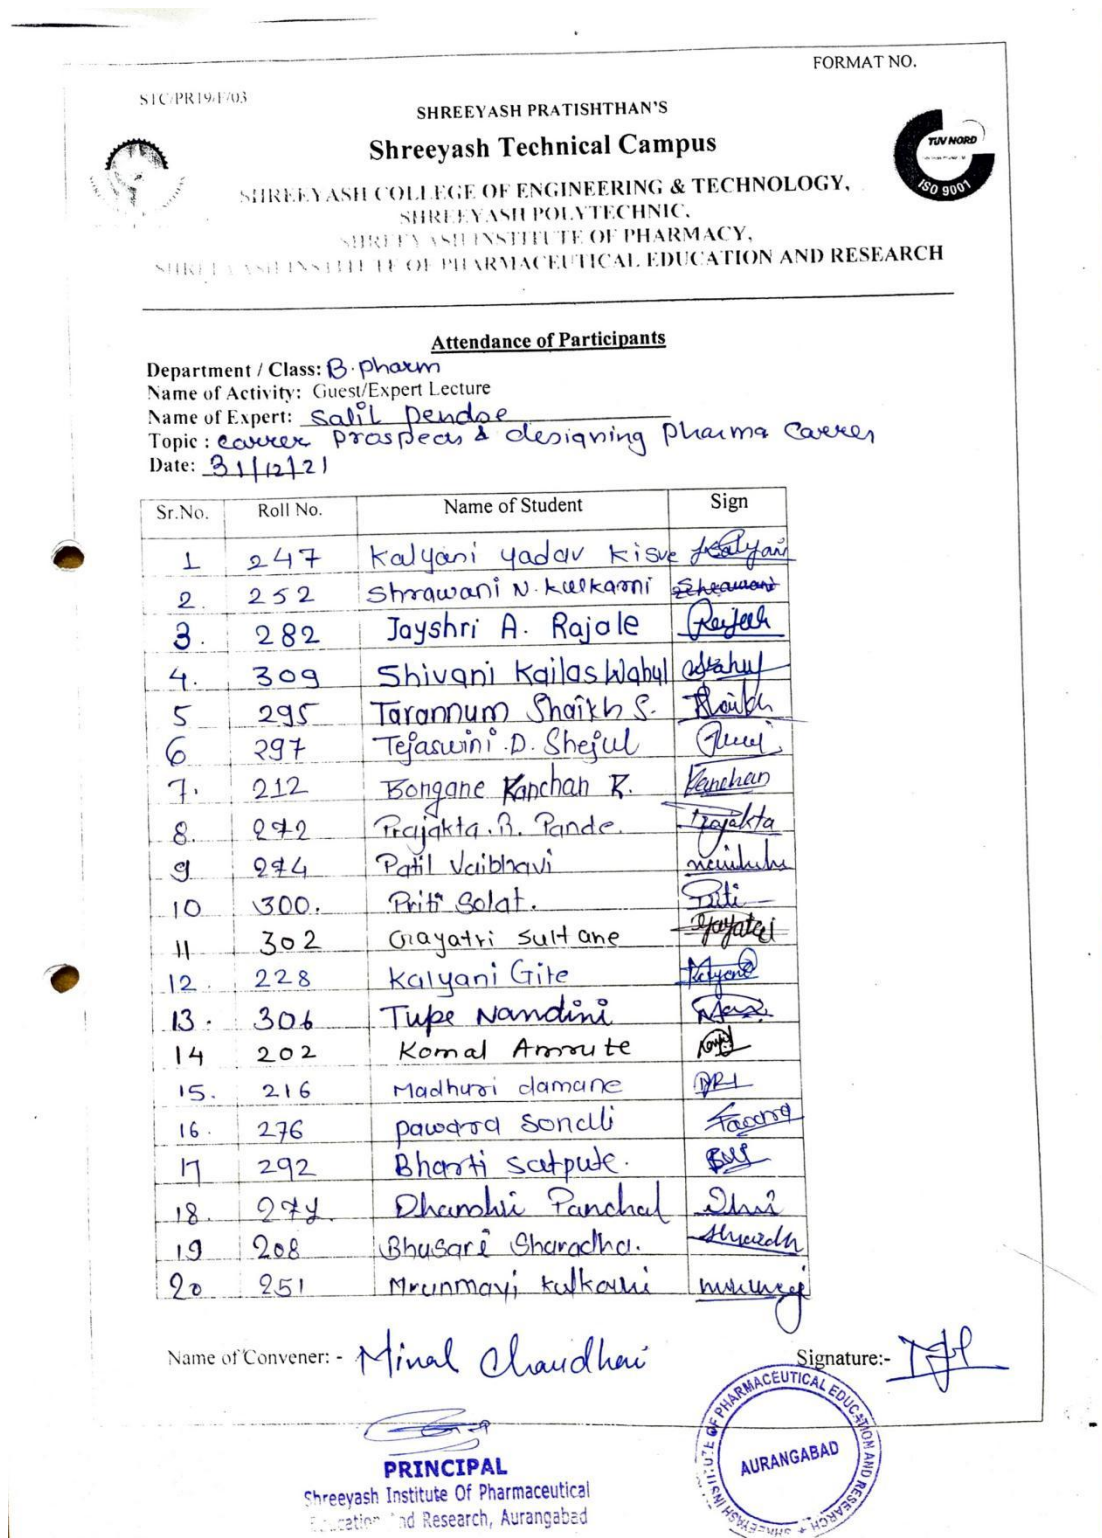 FORMAT NO.
STC/PR19/F/03
SHREEYASH PRATISHTHAN'S
Shreeyash Technical Campus
TUV NORD
ISO 9001
SHREEYASH COLLEGE OF ENGINEERING & TECHNOLOGY,
SHREEYASH POLYTECHNIC,
SHREEYASH INSTITUTE OF PHARMACY,
SHREEYASH INSTITUTE OF PHARMACEUTICAL EDUCATION AND RESEARCH
Attendance of Participants
Department / Class: B.pharm
Name of Activity: Guest/Expert Lecture
Name of Expert: Salil Pendse
Topic : designing Pharma
Date: 31/12/21
Sr.No. Roll No. Name of Student Sign
1 247 Kalyani yadav kisve Kalyani
2. 252 Shrawani N. kulkarni Shrawani
3. 282 Jayshri A. Rajale
4. 309 Shivani Kailas Wahul Wahul
5 295 Tarannum Shaikh S. Shaikh
6 297 Tejaswini .D. Shejul
7. 212 Bongane Kanchan R. Kanchan
8. 272 Prajakta .R. Pande. Prajakta
9 274 Patil Vaibhavi
10 300. Priti Solat. Priti
11 302 Gayatri sultane Gayatri
12. 228 Kalyani Gite Kalyani
13. 306 Tupe Nandini
14 202 Komal Amrute
15. 216 Madhuri damane
16. 276 pawara Sonali
17 292 Bharti satpute.
18. Dhanshri Panchal
19 208 Bhusare Sharadha.
20 251 Mrunmayi kulkarni
Name of Convener: - Minal Chaudhari Signature:-
PRINCIPAL
Shreeyash Institute Of Pharmaceutical
Education and Research, Aurangabad
SHREEYASH INSTITUTE OF PHARMACEUTICAL EDUCATION AND RESEARCH
AURANGABAD